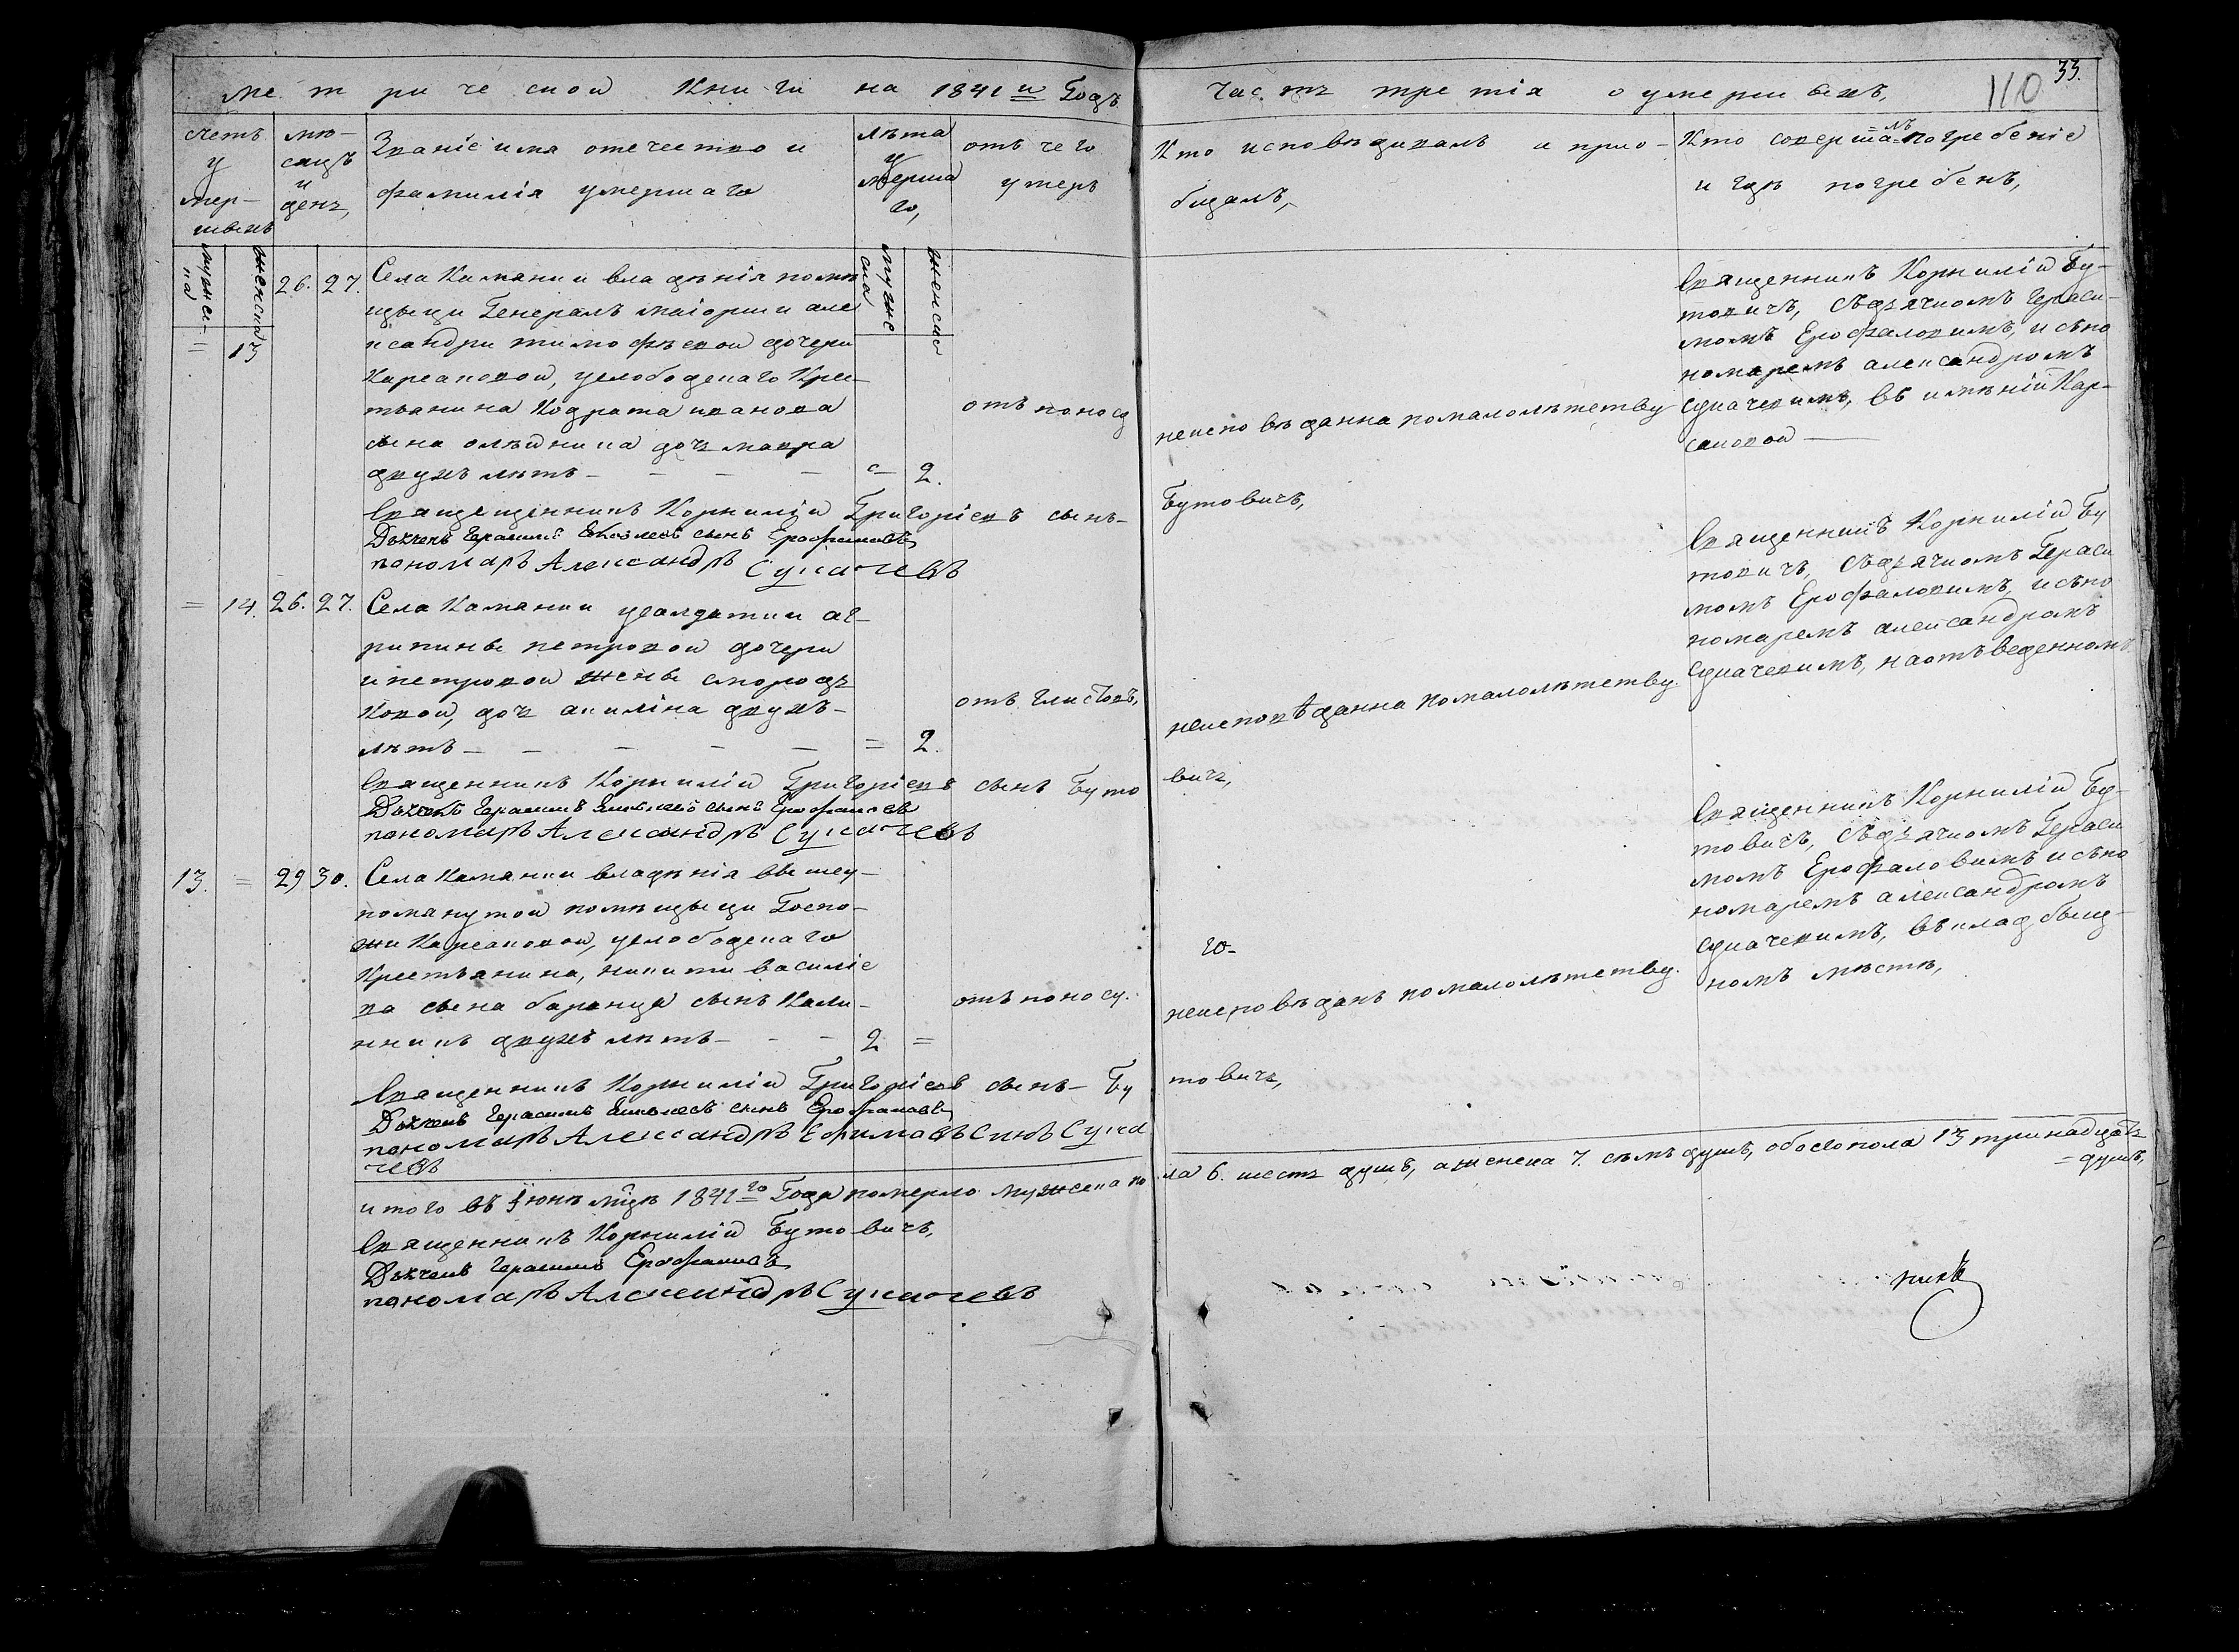 Метрической Книги на 1841й Годъ
Часть третія о умершихъ,
110
33.
счетъ умершихъ
мѣсяцъ и день,
Званіе имя отечество и
фамилія умершаго
лѣта умершаго,
отъ чего
умеръ
Кто исповѣдивалъ и прио-
бщалъ,
Кто совершалъ погребеніе
и гдѣ погребенъ,
мужеска
женска
мужеска
женска
=
13
26. 27.
Села Камянки владѣнія помѣ
щыци Генералъ маіорши але
ксандри тимофѣевой дочери
Карсаковой, услободскаго Крес-
тьянина Кодрата иванова
сына олѣйника дочь мавра
двухъ лѣтъ - - - - = 2.
отъ поносу
неисповѣданна помалолѣтству
Священникъ Корнилій Бу-
товичъ, съдьячкомъ Гераси-
момъ Ерофаловимъ, и съпо
номаремъ александромъ
сукачевимъ, въ имѣніи Кар-
саковой —
Священникъ Корнилій Григоріевъ сынъ-
Бутовичъ,
Дьячекъ Герасимъ Яковлевъ сынъ Ерофаловъ
пономарь Александръ Сукачевъ
= 14. 26. 27.
Села Камянки усалдатки аг-
рипины петровой дочери
ипетровой жены смолодь
ковой, дочь акилина двухъ-
лѣтъ - - - - - = 2.
отъ глистовъ,
неисповѣданна помалолѣтству.
Священникъ Корнилій Бу
товичъ, съдьячкомъ Гераси
момъ Ерофаловимъ, и съпо
номаремъ александромъ
сукачевимъ, наотъведенномъ
Священникъ Корнилій Григоріевъ сынъ Буто
вичь,
Дьячекъ Герасимъ Яковлевъ сынъ Ерофаловъ
пономарь Александръ Сукачевъ
13. = 29 30.
Села Камянки владѣнія вышеу-
помянутой помѣщыци Госпо-
жи Карсаковой, услободскаго
Крестьянина, никити василіе
ва сына баранца сынъ Кали-
нникъ двухъ лѣтъ - - - 2 =
отъ поносу.
го-
неисповѣданъ помалолѣтству.
Священникъ Корнилій Бу-
товичъ, съдьячкомъ Гераси
момъ Ерофаловимъ и съпо
номаремъ александромъ
сукачевимъ, въкладбыщ-
номъ мѣстѣ,
Священникъ Корнилій Григоріевъ сынъ- Бу
товичь,
Дьячекъ Герасимъ Яковлевъ сынъ Ерофаловъ
пономарь Александръ Ефимовъ Синъ Сука
чевъ
итого въ Іюнѣ мцѣ 1841го Года померло мужеска по
ла 6. шесть душъ, аженска 7. сѣмъ душъ, обоегопола 13 тринадцать
= душъ,
Священникъ Корнилій Бутовичъ,
Дьячекъ Герасимъ Ерофаловъ
пономарь Александръ Сукачевъ